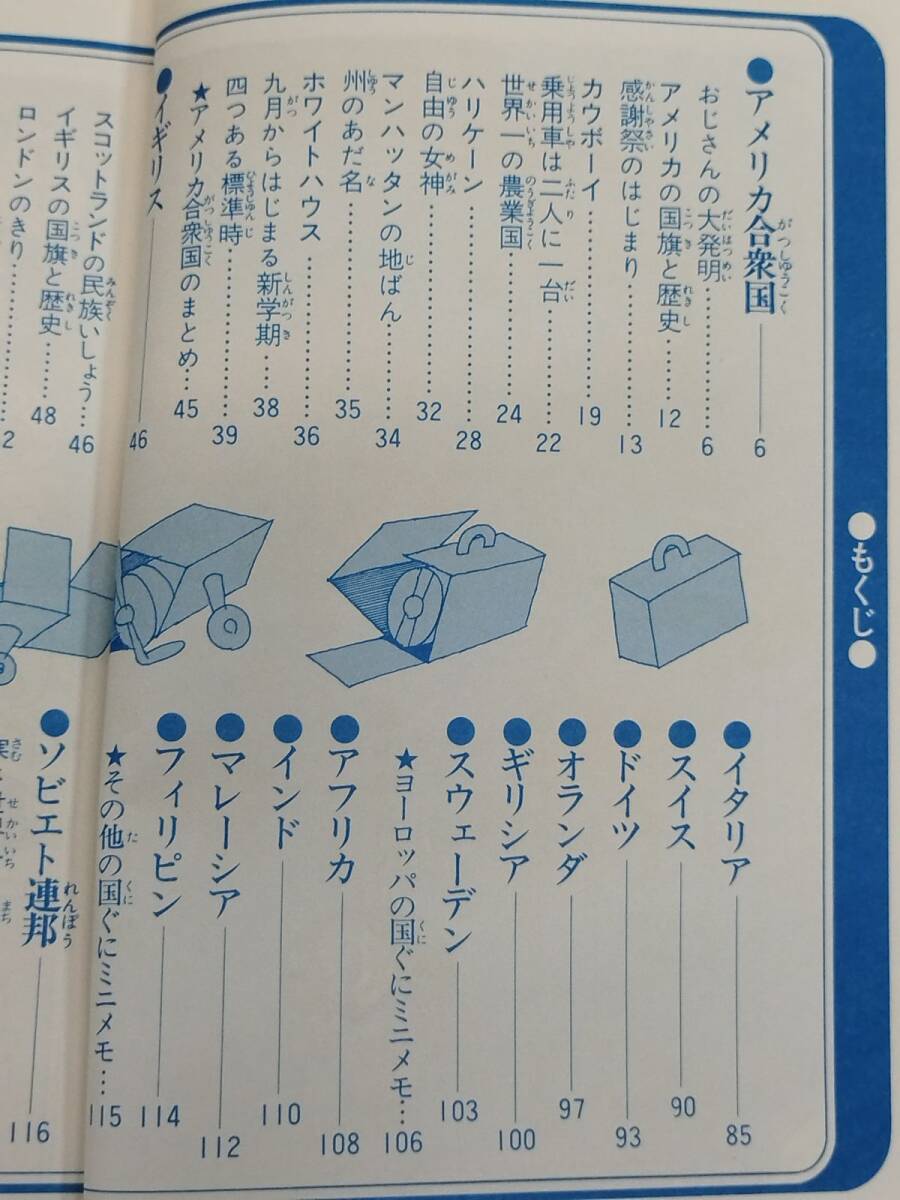 ●もくじ●
●アメリカ合衆国――6
おじさんの大発明……6
アメリカの国旗と歴史……12
感謝祭のはじまり……13
カウボーイ……19
乗用車は二人に一台……22
世界一の農業国……24
ハリケーン……28
自由の女神……32
マンハッタンの地ばん……34
州のあだ名……35
ホワイトハウス……36
九月からはじまる新学期……38
四つある標準時……39
★アメリカ合衆国のまとめ…45
●イギリス――46
スコットランドの民族いしょう…46
イギリスの国旗と歴史……48
ロンドンのきり……
●イタリア――85
●スイス――90
●ドイツ――93
●オランダ――97
●ギリシア――100
●スウェーデン――103
★ヨーロッパの国ぐにミニメモ…106
●アフリカ――108
●インド――110
●マレーシア――112
●フィリピン――114
★その他の国ぐにミニメモ…115
●ソビエト連邦――116